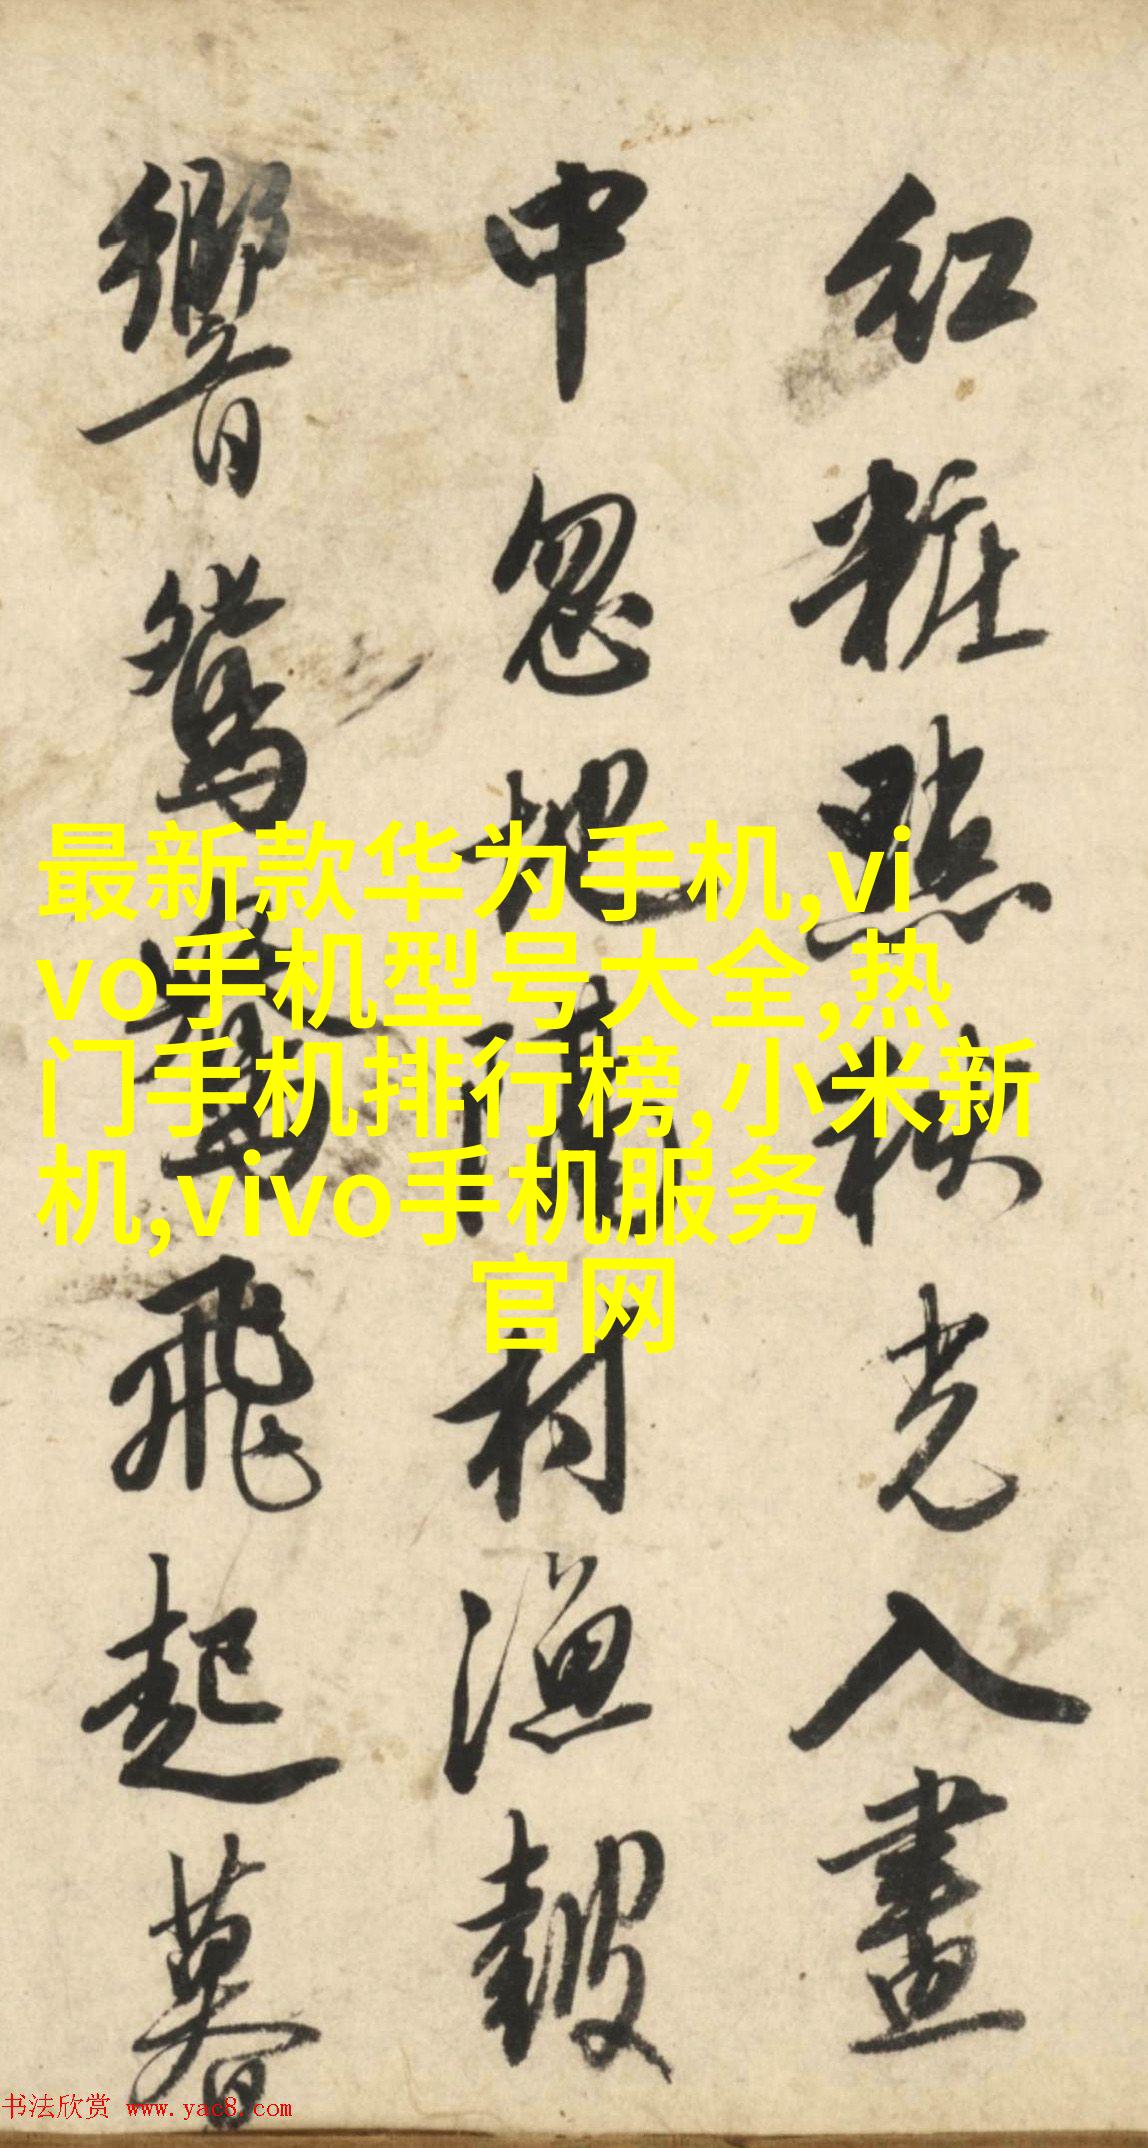 紅粧點光入畫
中忽地村漁鼓
響鴛鴦飛起暮
最新款华为手机,vi
vo手机型号大全,热
门手机排行榜,小米新
机,vivo手机服务
官网
书法欣赏 www.yac8.com